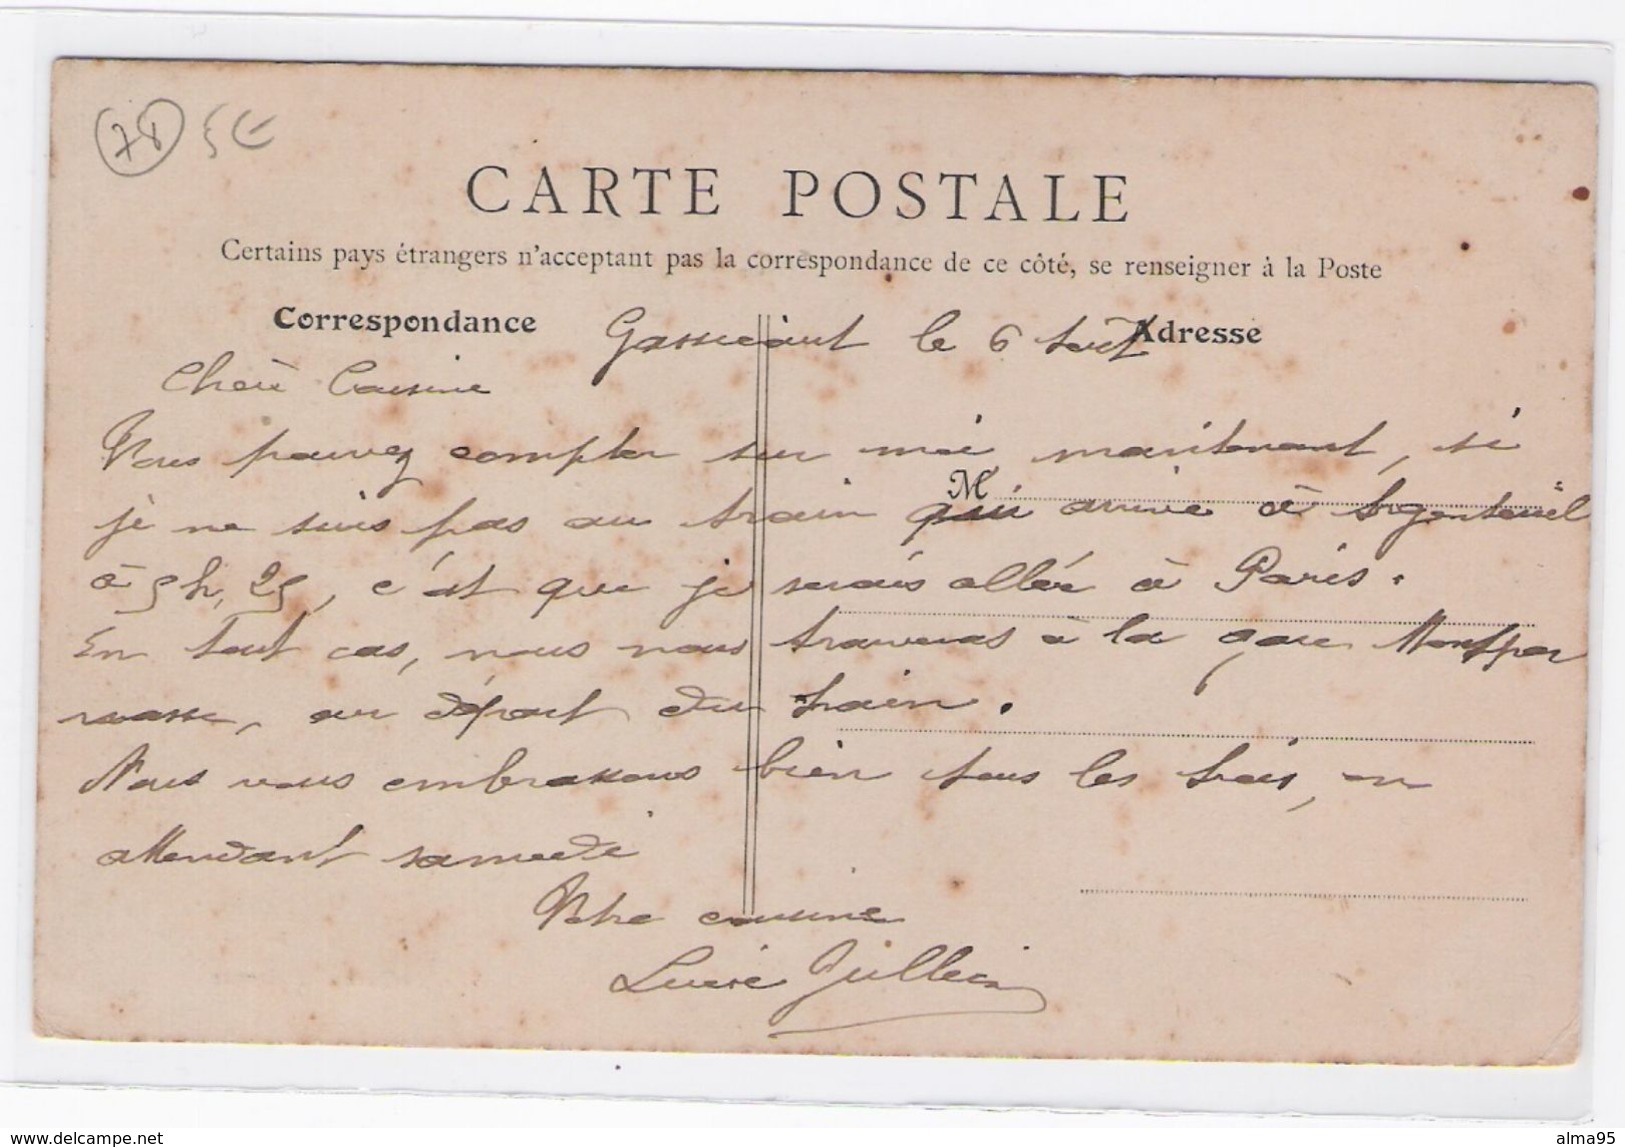 78 5€
CARTE POSTALE
Certains pays étrangers n'acceptant pas la correspondance de ce côté, se renseigner à la Poste
Correspondance Adresse
Gassicourt le 6 Août
Chère Cousine
Vous pouvez compter sur moi maintenant, si
M
je ne suis pas au train qui arrive à Argenteuil
à 5h,25, c'est que je serais allée à Paris.
En tout cas, nous nous trouverons à la gare Montpar
nasse, au départ du train.
Nous vous embrassons bien tous les trois, en
attendant samedi
Votre cousine
Lucie Jullien
www.delcampe.net
alma95